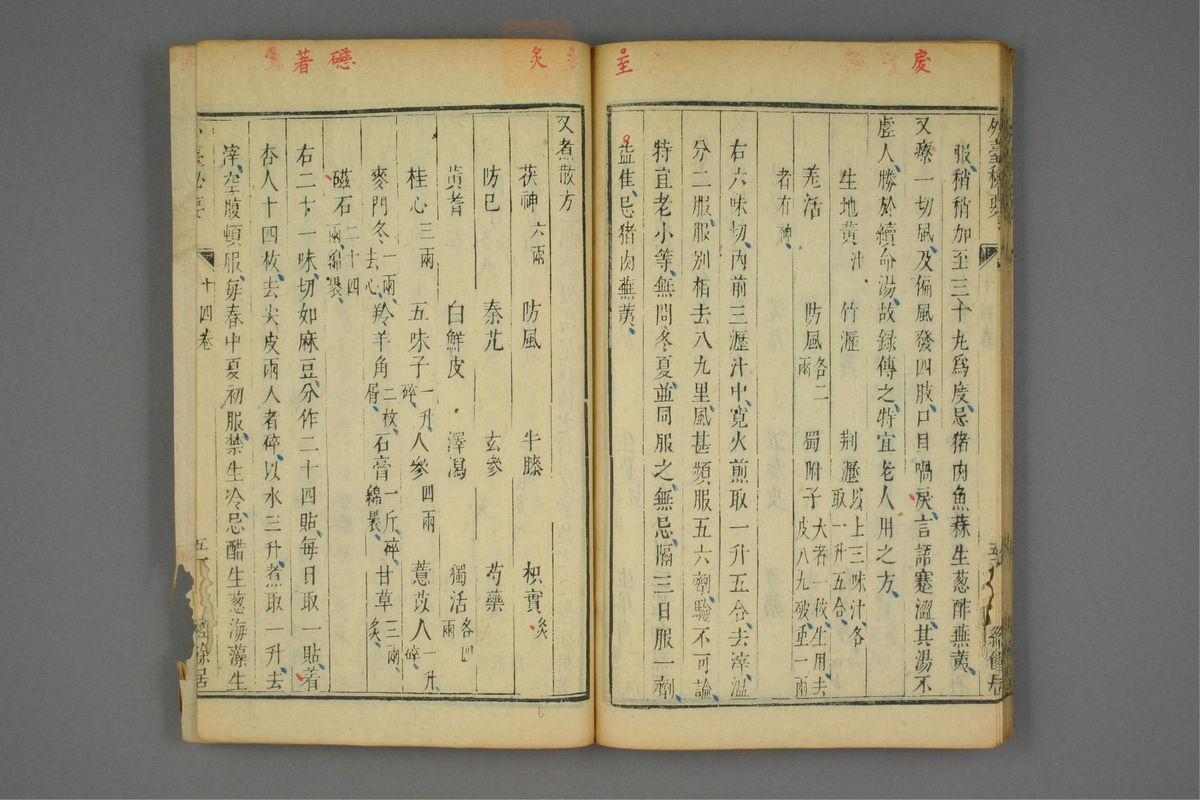 慶
𦤶
服稍稍加至三十丸爲度忌猪肉魚蒜生葱酢蕪荑
又療一切風及偏風發四肢口目喎戾言語蹇澀其湯不
虛人勝於續命湯故録傳之特宜老人用之方
生地黃汁 竹瀝 荆瀝以上三味汁各取一升五合
羌活 防風各二兩 蜀附子大者一枚生用去皮八九破重一兩
者有神
右六味切内前三瀝汁中寛火煎取一升五合去滓温
分二服服别相去八九里風甚頻服五六劑驗不可論
特宜老小等無問冬夏並同服之無忌隔三日服一劑
益佳忌猪肉蕪荑
炙
礠
著
又煮散方
茯神六兩 防風 牛膝 枳實炙
防巳 秦艽 玄參 芍藥
黃耆 白鮮皮 澤瀉 獨活各四兩
桂心三兩 五味子一升碎 人參四兩 薏苡人一升碎
麥門冬一兩去心 羚羊角二枚屑 石膏一斤碎綿裹 甘草三兩炙
磁石二十四兩綿裹
右二十一味切如麻豆分作二十四貼每日取一貼著
杏人十四枚去尖皮兩人者碎以水三升煮取一升去
滓空腹頓服每春中夏初服禁生冷忌醋生葱海藻生
十四卷